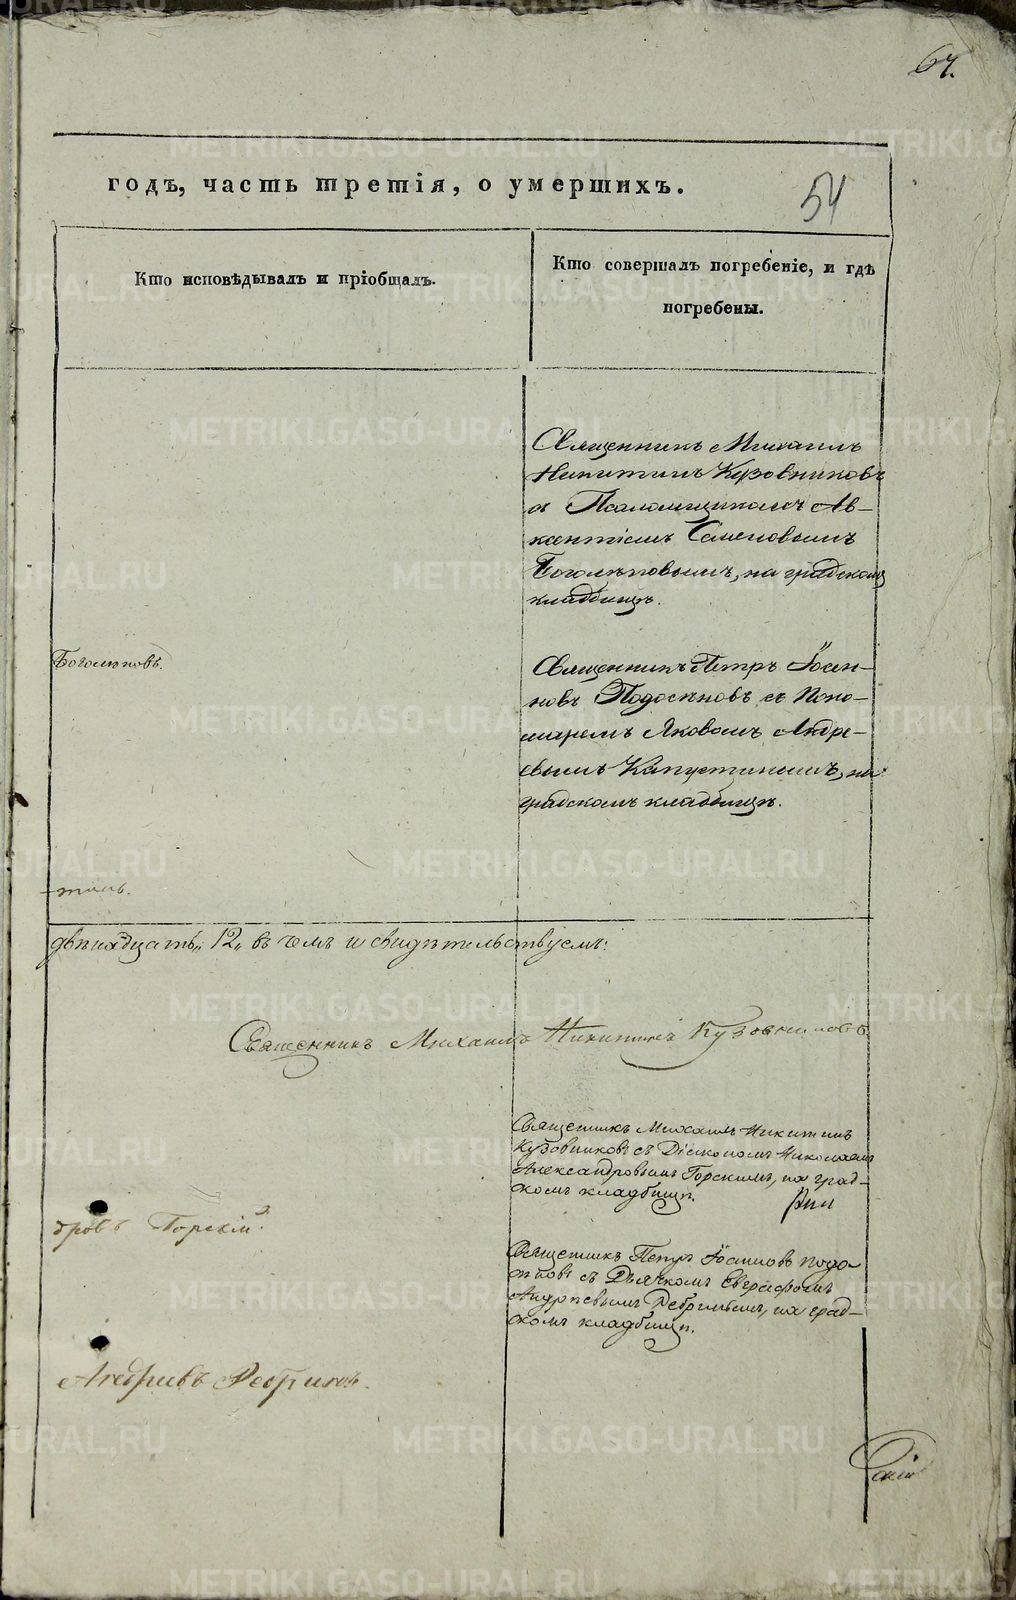 64.
годъ, часть третія, о умершихъ.
54
Кто исповѣдывалъ и пріобщалъ.
Кто совершалъ погребеніе, и гдѣ
погребены.
Священникъ Михаилъ
Никитинъ Кузовниковъ
съ Псаломщикомъ Ав-
ксентіемъ Семеновымъ
Боголѣповымъ, на градскомъ
кладбищѣ.
Боголѣповъ.
Священникъ Петръ Іоси-
новъ Подосѣновъ съ Поно-
маремъ Яковомъ Андре-
евымъ Капустинымъ, на
градскомъ кладбищѣ.
двѣнадцать „12„ въ чемъ и свидѣтельствуемъ:
Священникъ Михаилъ Никитинъ Кузовниковъ
Священникъ Михаилъ Никитинъ
Кузовниковъ съ Діакономъ Николаемъ
Александровымъ Горскимъ, на град-
скомъ кладбищѣ.
дровъ Горскій.
Священникъ Петръ Іосиповъ Подо-
сѣновъ съ Дьячкомъ Евграфомъ
Андреевымъ Ребринымъ, на град-
скомъ кладбищѣ.
Андреевъ Ребринъ.
METRIKI.GASO-URAL.RU